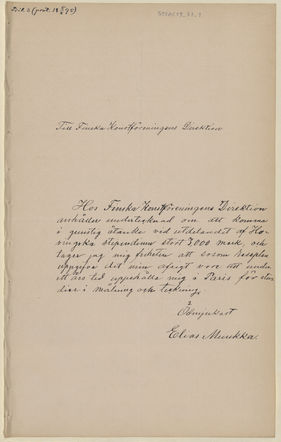 Till Finska Konstföreningens Direktion
Hos Finska Konstföreningens Direktion
anhåller undertecknad om att komma
i gunstig åtanke vid utdelandet af Ho-
vingska stipendium stort 3,000 mark, och
tager jag mig friheten att såsom reseplan
uppgifva det min afsigt vore att under
ett års tid uppehålla mig i Paris för stu-
dier i målning och teckning.
Ödmjukast
Elias Muukka.